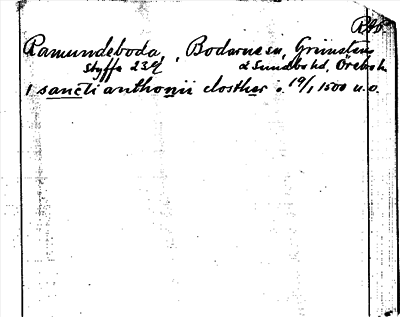 RAÖ
Ramundeboda, Bodarne sn, Grimstens
Styffe 237 & Sundbo hd, Örebro l.
I sancti anthonii closther i 19/1 1500 u.o.